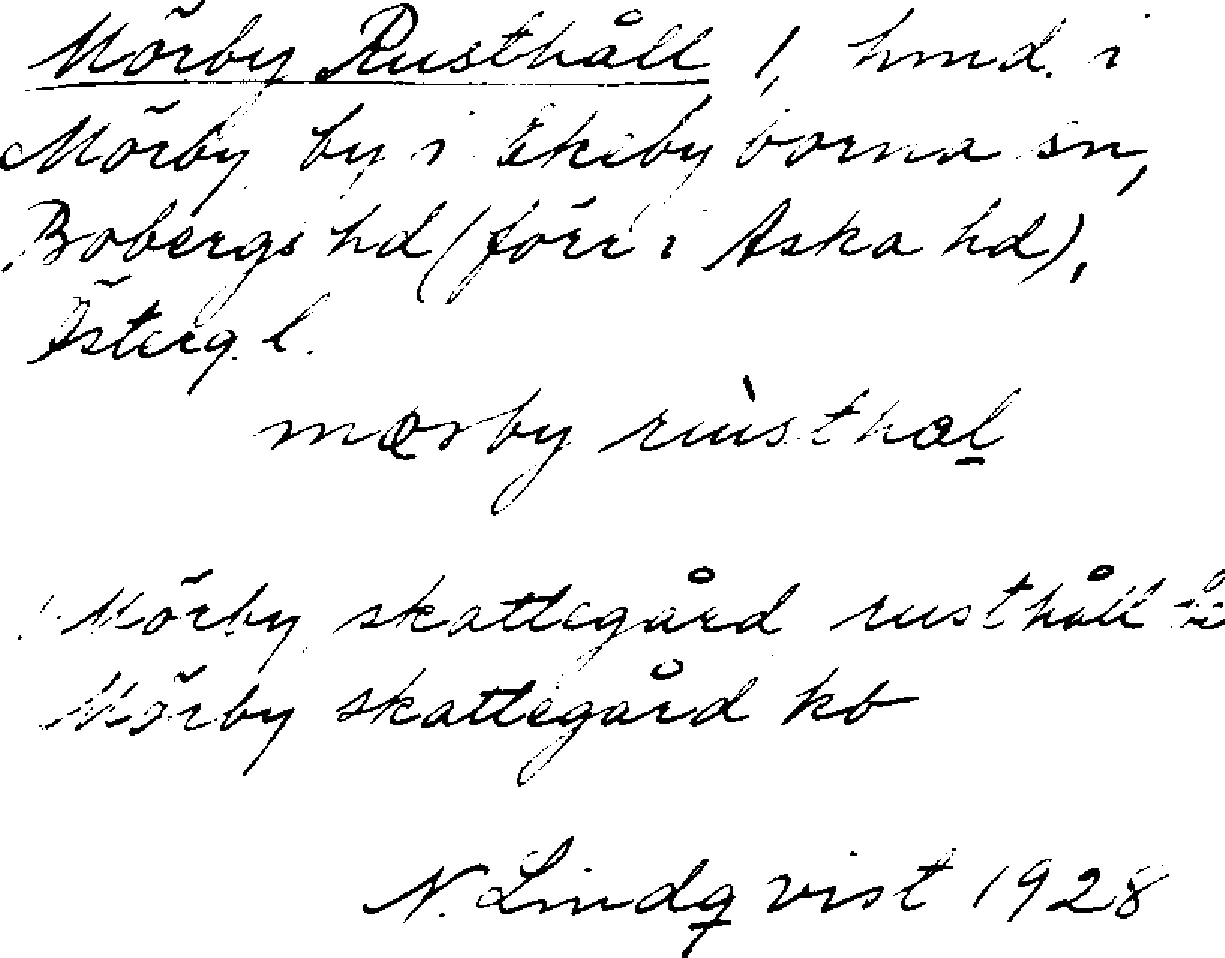 Mörby Rusthåll 1, hmd. i
Mörby by i Ekebyborna sn,
Bobergs hd (förr i Aska hd),
Österg. l.
mœrby rùsthol
Mörby skattegård rusthåll
Mörby skattegård kb
N. Lindqvist 1928